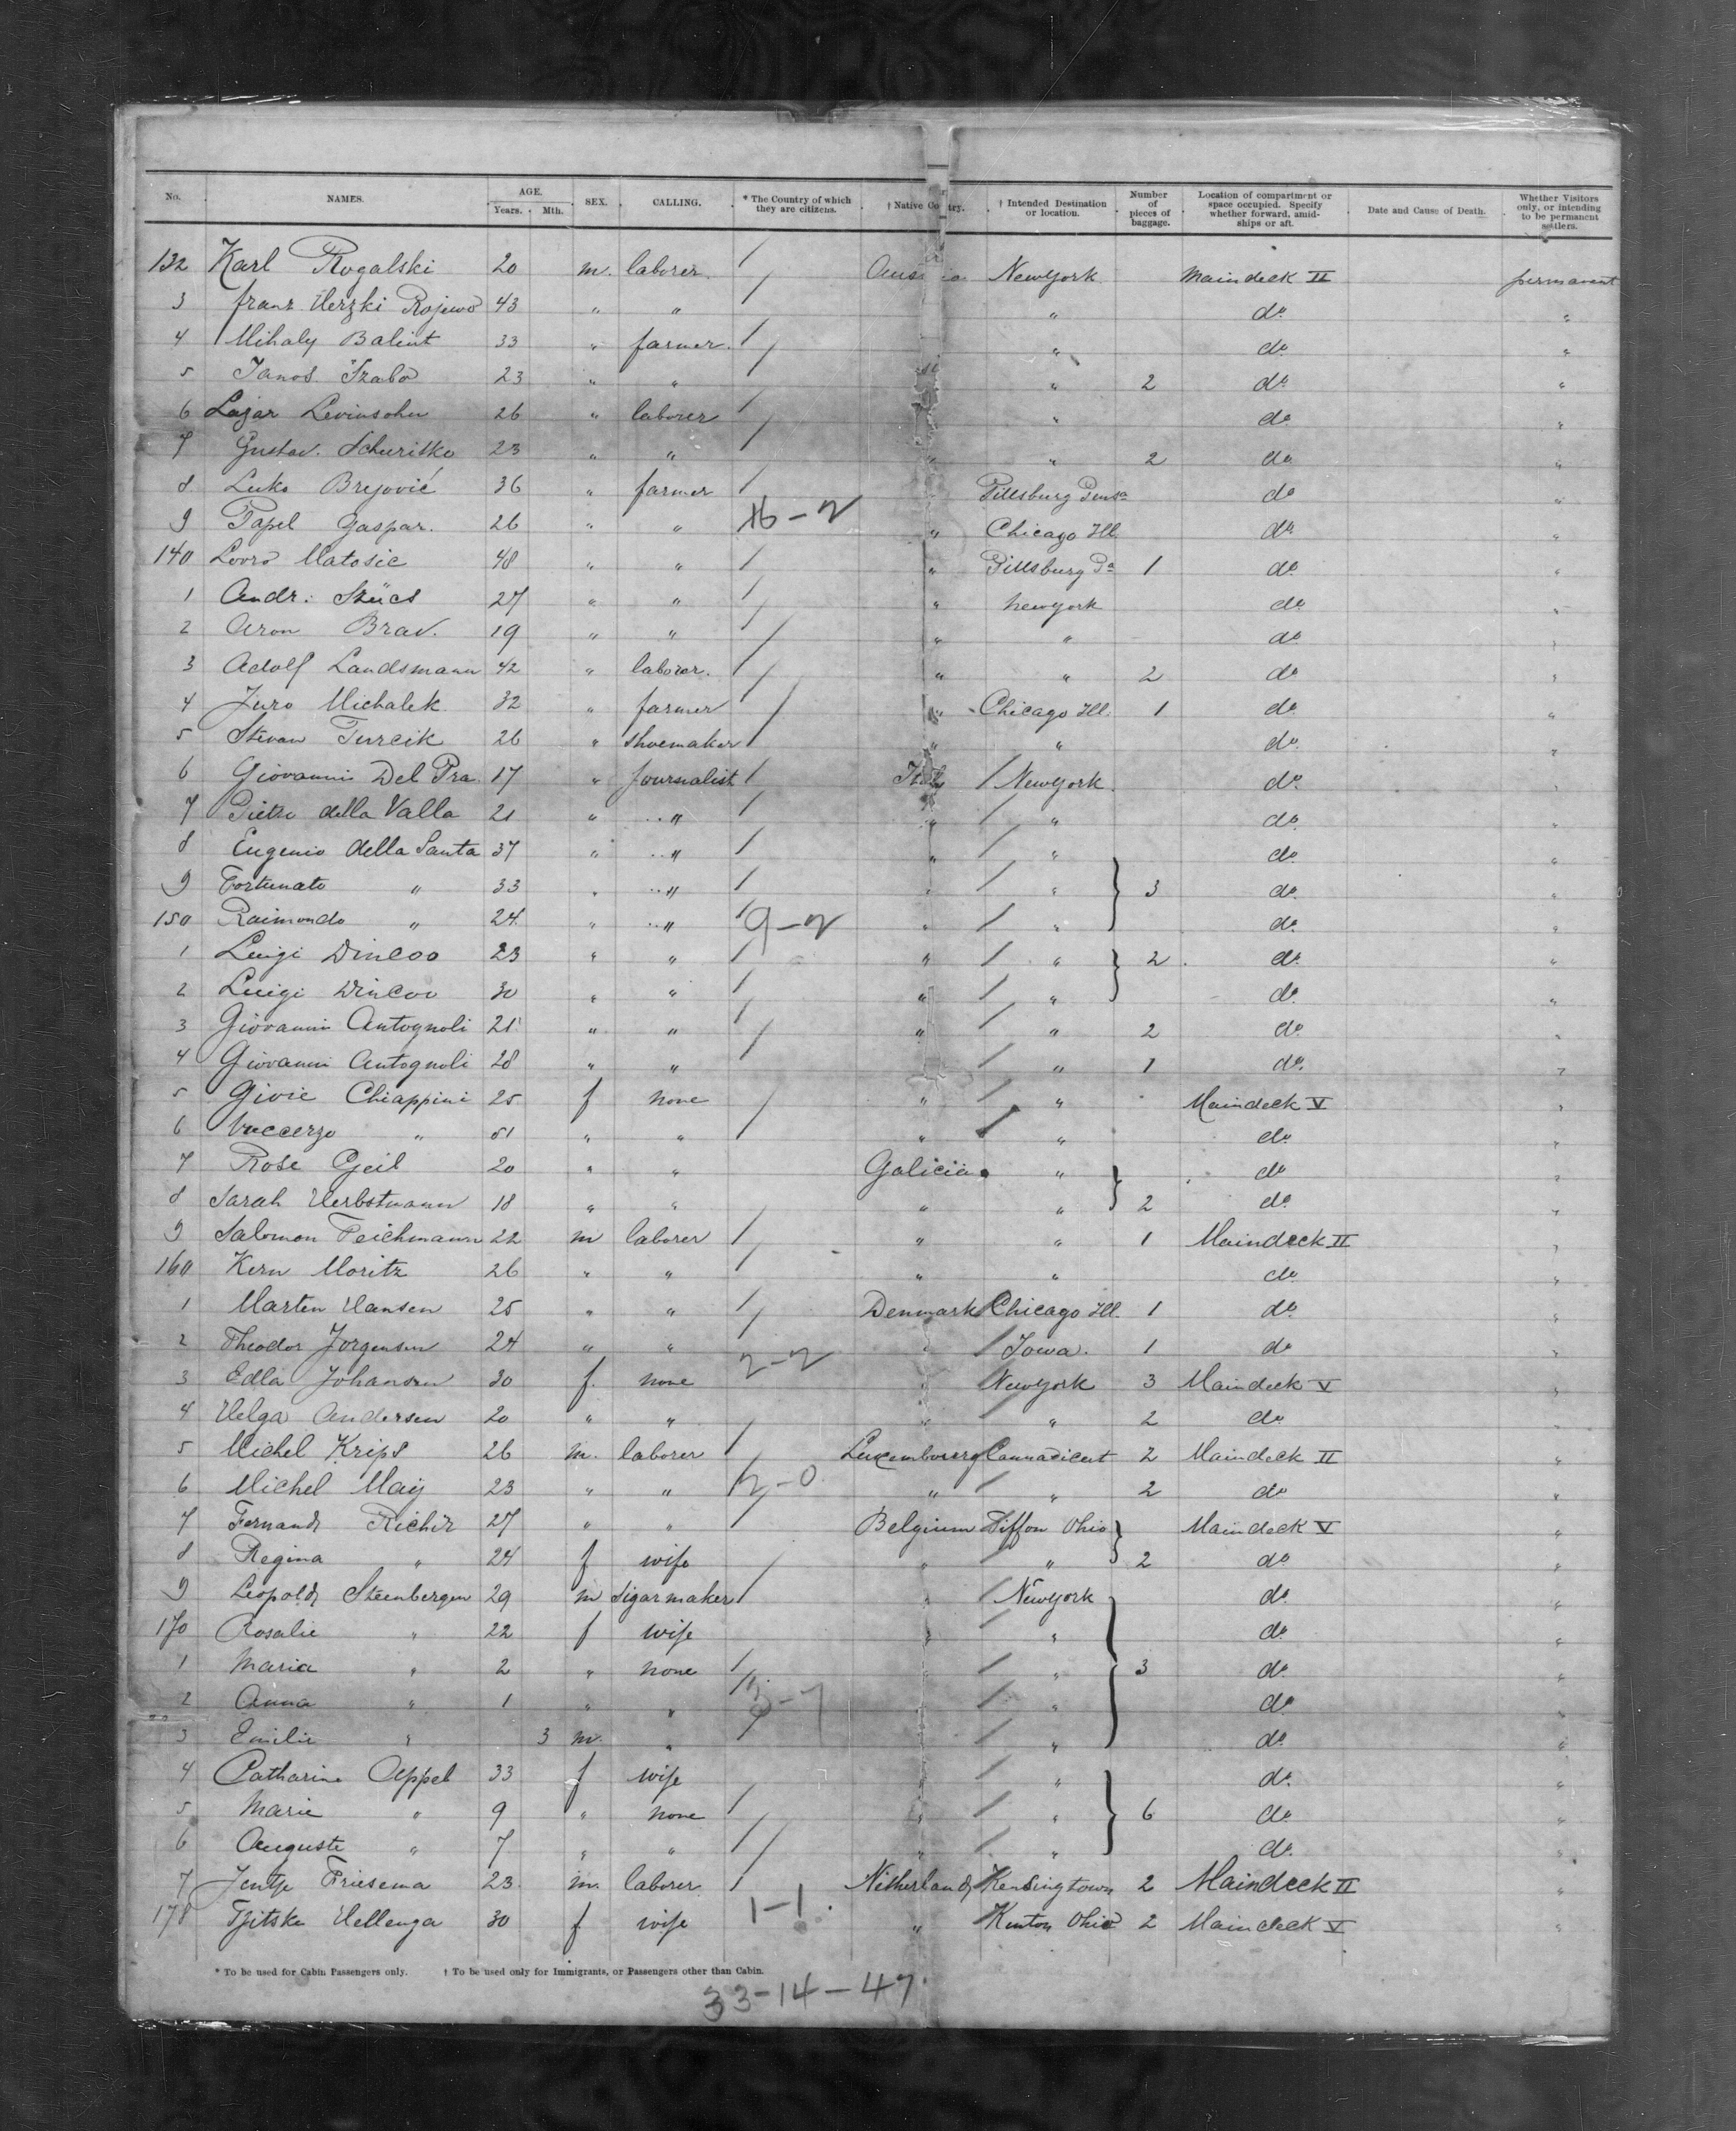 No. NAMES. AGE. Years. Mth. SEX. CALLING. * The Country of which they are citizens. † Native Country. † Intended Destination or location. Number of pieces of baggage. Location of compartment or space occupied. Specify whether forward, amidships or aft. Date and Cause of Death. Whether Visitors only, or intending to be permanent settlers.
132 Karl Rogalski 20 m. laborer. / Newyork Maindeck II permanent
3 franz Herzki Rojewo 43 " " / " do "
4 Mihaly Balint 33 " farmer. / " do "
5 Janos Szabo 23 " " / " 2 do "
6 Lajar Levinsohn 26 " laborer / " do "
7 Gustav. Schuritke 23 " " / " " 2 do "
8 Luka Brejović 36 " farmer / " Pittsburg Pensa do "
9 Papel Gaspar. 26 " " 16-2 " Chicago Ill. do "
140 Lovro Matosic 48 " " / " Pittsburg Pa 1 do "
1 Andr: Szücs 27 " " / " Newyork do "
2 Aron Brav. 19 " " / " " do "
3 Adolf Landsmann 42 " laborer. / " " 2 do "
4 Juro Michalek 32 " farmer / " Chicago Ill. 1 do "
5 Stevan Turcik 26 " shoemaker / " " do "
6 Giovanni Del Pra 17 " journalist / Italy / Newyork. do "
7 Pietro della Valla 21 " " / " / " do "
8 Eugenio della Santa 37 " " / " / " do "
9 Fortunato " 33 " " / " / " 3 do "
150 Raimondo " 24. " " / 9-2 " / " do "
1 Luigi Dincoo 23 " " / " / " 2 do "
2 Luigi Dincoo 30 " " / " / " do "
3 Giovanni Antognoli 21 " " / " / " 2 do "
4 Giovanni Antognoli 28 " " / / " 1 do. "
5 Giovie Chiappini 25 f none " / " Maindeck V "
6 " 51 " " / " / " do "
7 Rose Geil 20 " " Galicia " do "
8 Sarah Herbstmann 18 " " " " 2 do "
9 Salomon Teichmann 22 m laborer / " " 1 Maindeck II "
160 Kern Moritz 26 " " / " " do "
1 Marten Hansen 25 " " / Denmark Chicago Ill. 1 do "
2 Theodor Jorgensen 24 " " / 2-2 " / Iowa. 1 do "
3 Edla Johansen 30 f. none " Newyork 3 Maindeck V "
4 Helga Andersen 20 " " " / " 2 do "
5 Michel Krips 26 m. laborer / Luxembourg Cannadicut 2 Maindeck II "
6 Michel May 23 " " 2-0 " / " 2 do "
7 Fernand Richir 27 " " / Belgium Tiffon Ohio Maindeck V "
8 Regina " 24 f wife " / " 2 do "
9 Leopold Steenbergen 29 m Sigarmaker / " / Newyork do "
170 Rosalie " 22 f wife " / " do "
1 Maria " 2 " none / / " 3 do "
2 Anna " 1 " " / 3-7 / " do "
3 Emilie " 3 m. " / / " do "
4 Catharine Appel 33 f wife / " do "
5 Marie " 9 " none / " / " 6 do "
6 Auguste " 7 " " / " / " do "
7 Jentje Friesema 23. m. laborer / Nitherland Kensingtown 2 Maindeck II "
178 Tjitske Hellenga 30 f wife 1-1. " Kenton Ohio 2 Maindeck V "
* To be used for Cabin Passengers only. † To be used only for Immigrants, or Passengers other than Cabin.
33-14-47.